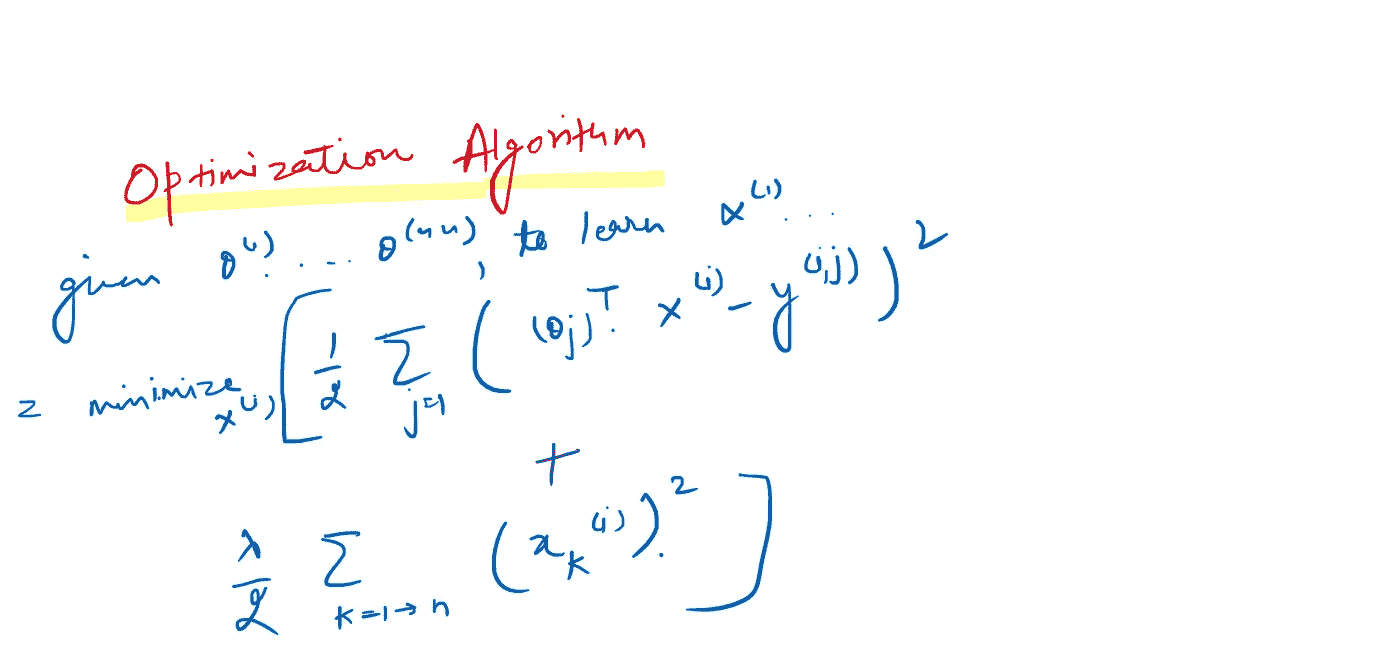 Optimization Algoritum
given θ^(1) .... θ^(nu), to learn x^(1) ...
= minimize x^(i) [ 1/2 Σ j=1 ( (θj)^T . x^(i) - y^(i,j) )^2
+
λ/2 Σ k=1→n ( x_k^(i) ).^2 ]